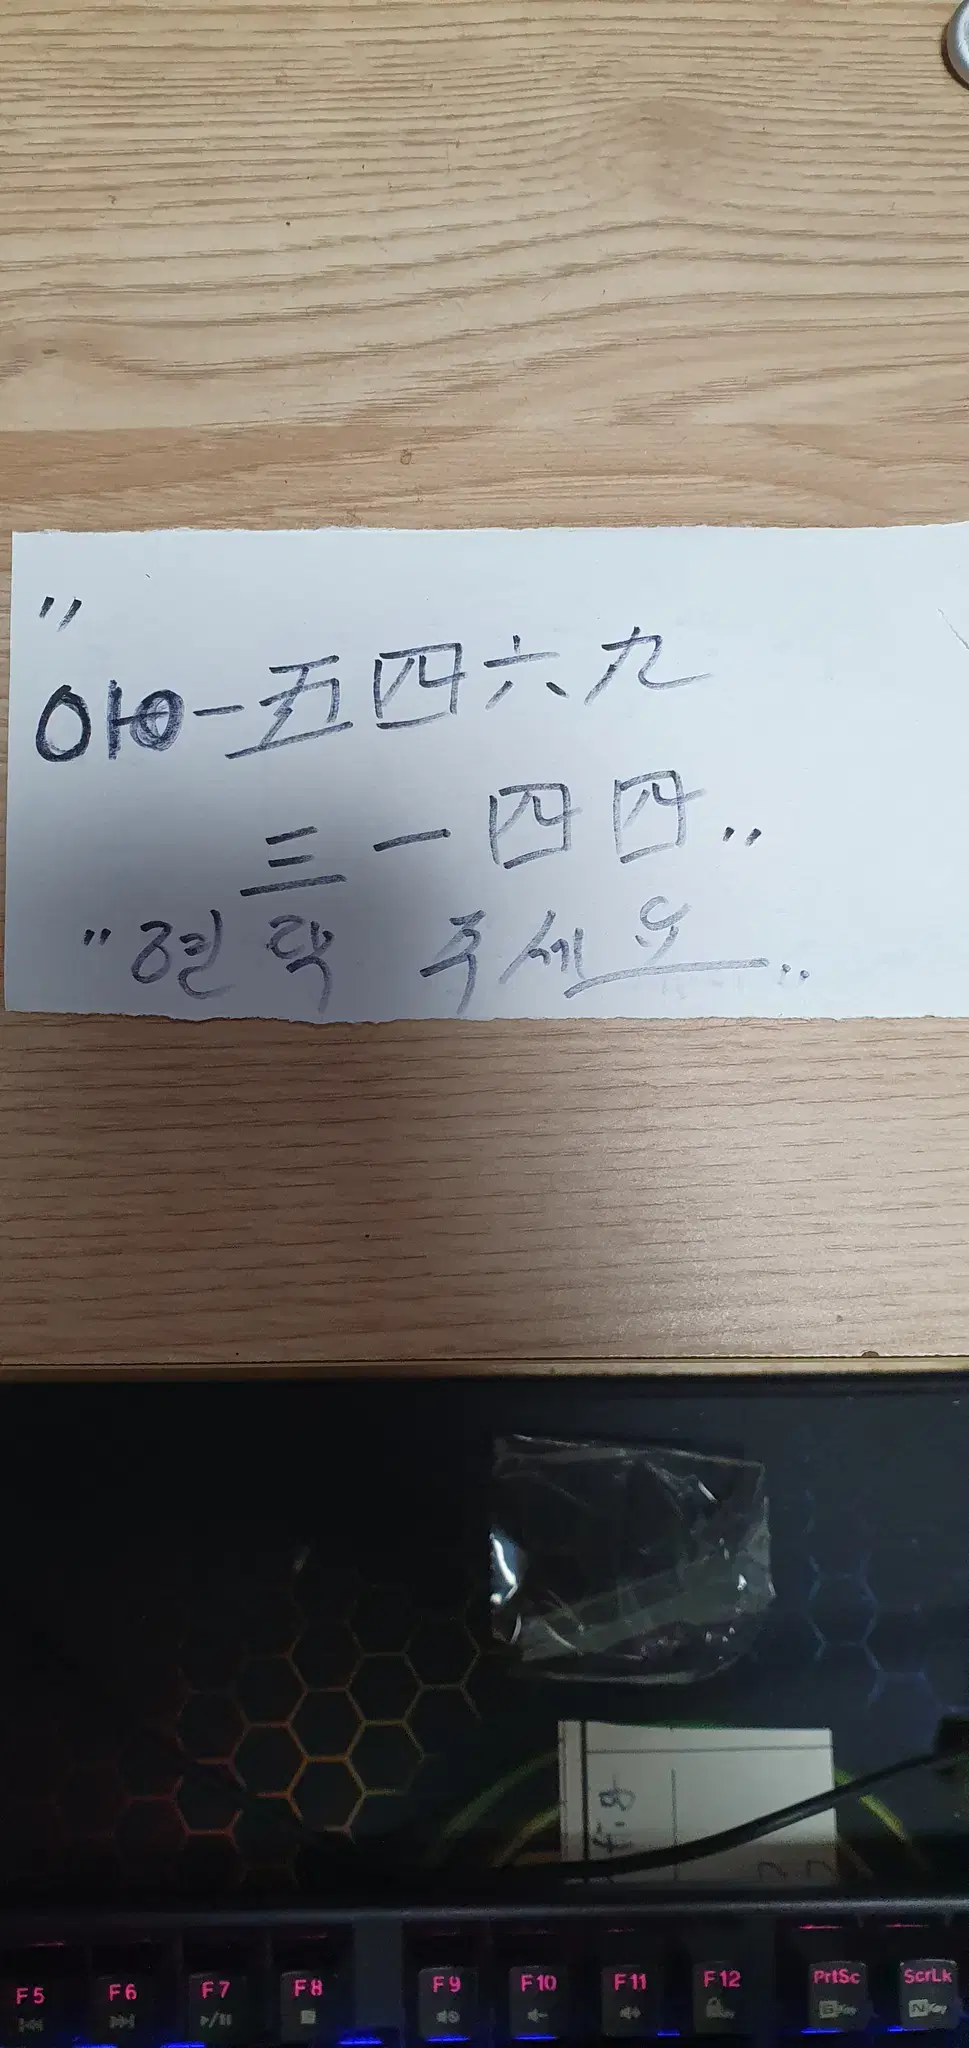 "
010-五四六九
三一四四..
"연락 주세요..
F5 F6 F7 F8 F9 F10 F11 F12 PrtSc ScrLk